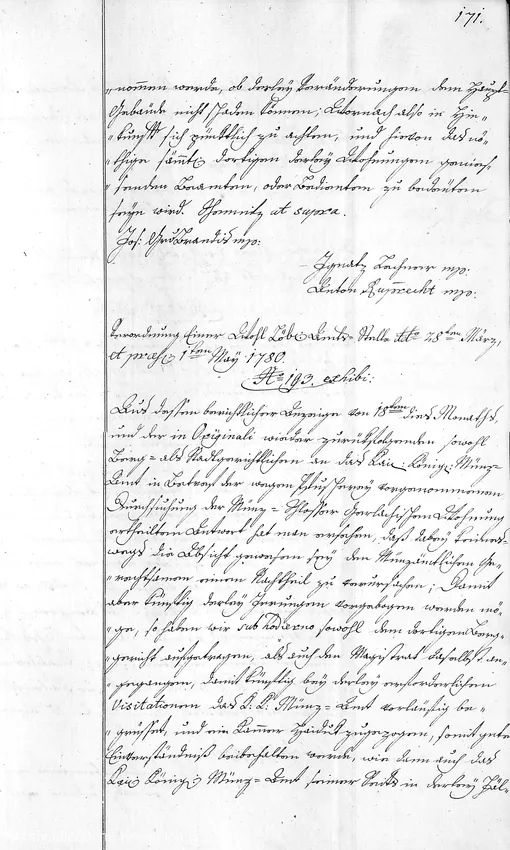 171.
„nommen werde, ob derley Veränderungen dem Haupt-
Gebäude nicht schaden können; Wornach also in Hin-
„künft sich pünktlich zu achten, und hievon das nö-
„thige sämtl: dortigen derley Wohnungen genies-
„senden Beamten, oder Bedienten zu bedeuten
seyn wird. Chemnitz ut supra.
Jos: Brandis mp:
Ignatz Lechner mp.
Anton Ruprecht mp.
Verordnung Einer Wohl Löbl: Amts-Stelle dto 28ten März,
et præs: 1ten May 1780.
No 193. exhibi:
Aus dessen berichtlicher Anzeige von 18ten dies Monaths,
und der in Originali wieder zurückfolgenden sowohl
Berg- als Stadtgerichtlichen an das Kai: König: Münz-
Amt in Betref der wegen vorgenommenen
Durchsuchung der Münz-Schlosser Wohnung
ertheilten Antwort hat man ersehen, daß dabey keines-
wegs die Absicht gewesen sey den Münzämtlichen Ge-
„rechtsamen einen Nachtheil zu verursachen; Damit
aber künftig derley Irrungen vorgebogen werden mö-
„ge, so haben wir sub hodierno sowohl dem dortigen Berg-
„gericht aufgetragen, als auch den Magistrat daselbst an-
„gegangen, damit künftig bey derley erforderlichen
Visitationen das K. K. Münz-Amt vorläufig be-
„grüsset, und ein Kammer Haiduk zugezogen, somit gute
Einverständniß beibehalten werde, wie dann auch das
Kai: König: Münz-Amt seiner Seits in derley Fäl-